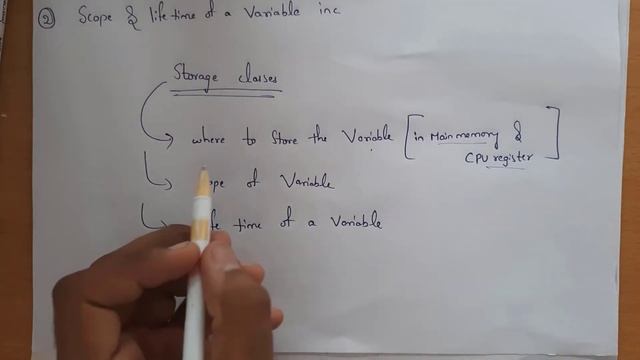 ② Scope & life time of a Variable inc
Storage classes
where to store the Variable [in Main memory &
CPU register]
of Variable
time of a Variable